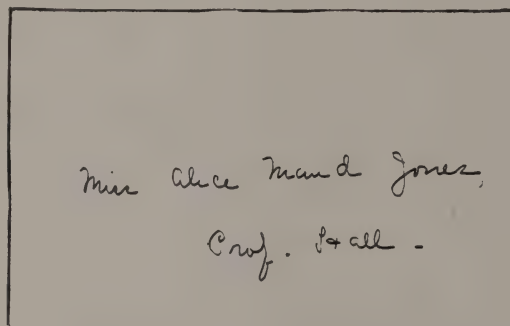 Miss Alice Maud Jones,
Prof. Hall.